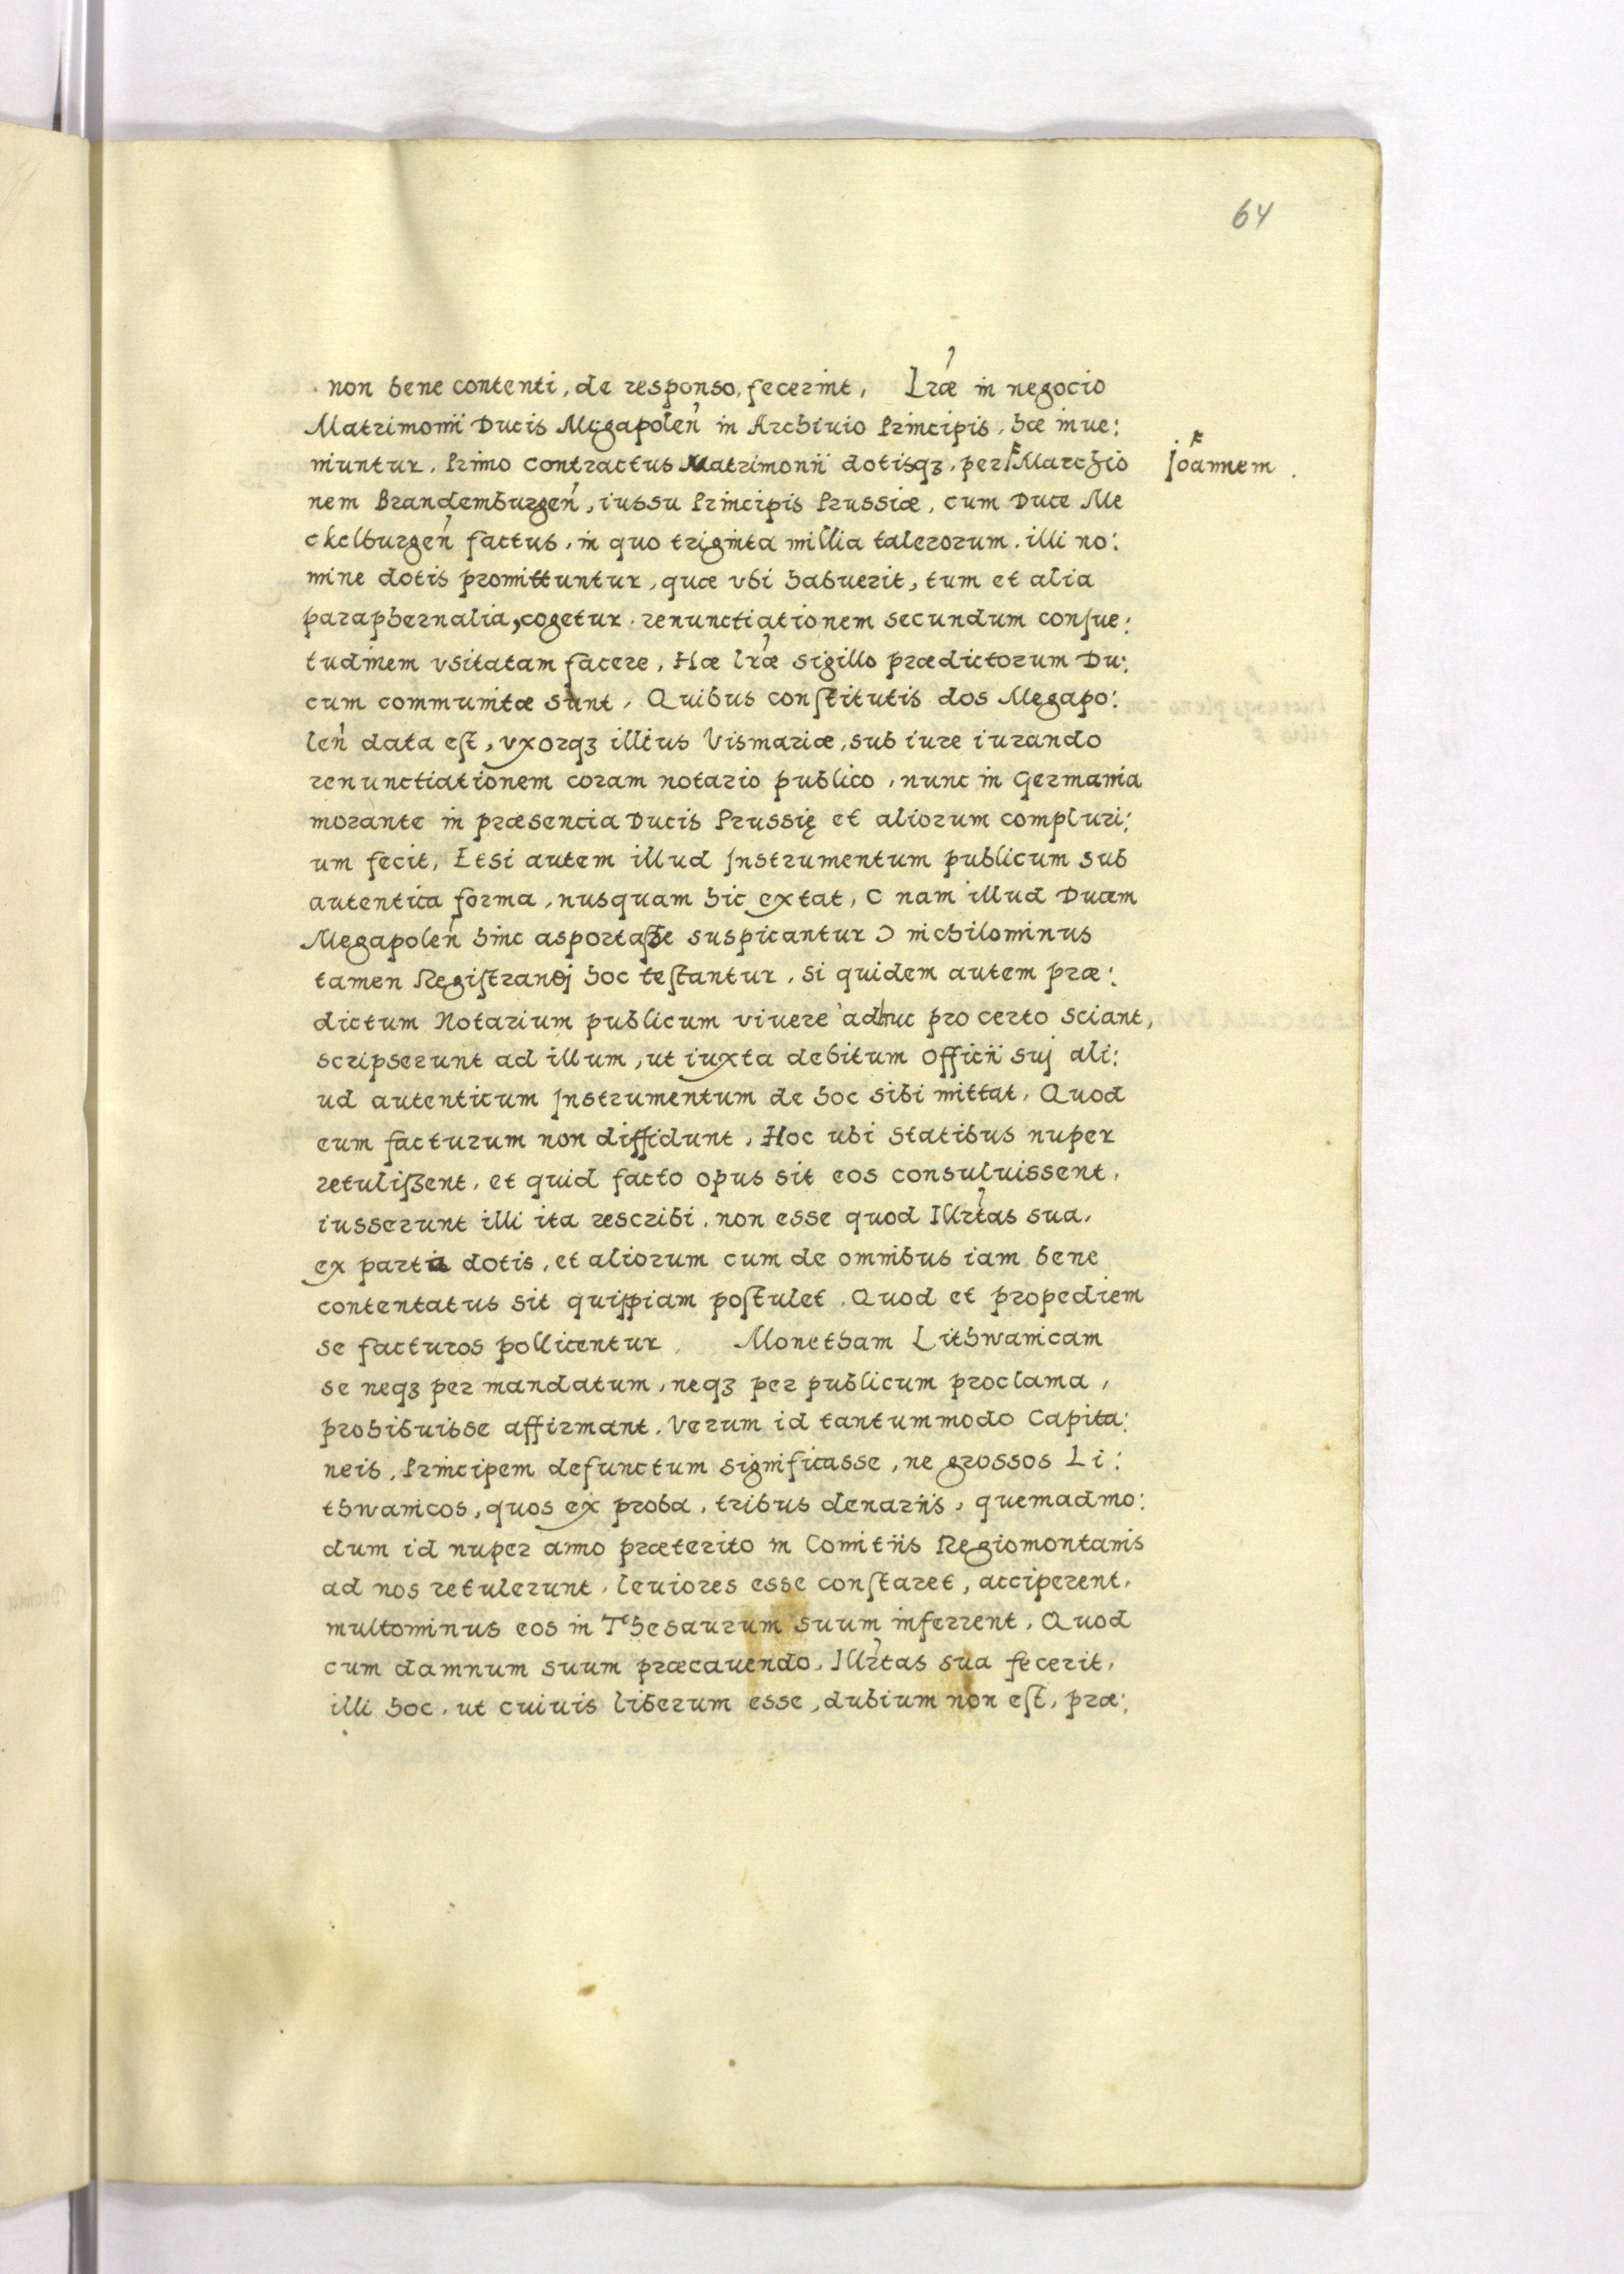 64
non bene contenti, de responso, fecerint, Lr̃æ in negocio
Matrimonii Ducis Megapoleñ in Archiuio Principis, hæ inue:
niuntur. Primo contractus Matrimonii dotisqꝫ, per Marchio
Joannem.
nem Brandemburgeñ, iussu Principis Prussiæ, cum Duce Me
ckelburgeñ factus, in quo triginta millia talerorum. illi no:
mine dotis promittuntur, quæ vbi habuerit, tum et alia
paraphernalia, cogetur. renunctiationem secundum conſue:
tudinem vsitatam facere, Hæ lr̃æ sigillo prædictorum Du:
cum communitæ sunt, Quibus conſtitutis dos Megapo:
leñ data eſt, vxorqꝫ illius Vismariæ, sub iure iurando
renunctiationem coram notario publico, nunc in Germania
morante in præsencia Ducis Prussię et aliorum compluri:
um fecit, Etsi autem illud Jnstrumentum publicum sub
autentica forma, nusquam hic extat, ( nam illud Ducem
Megapoleñ hinc asportaſſe suspicantur ) nichilominus
tamen Regiſtrandj hoc teſtantur, si quidem autem præ:
dictum Notarium publicum viuere adhuc pro certo sciant,
scripserunt ad illum, ut iuxta debitum officii suj ali:
ud autenticum Jnstrumentum de hoc sibi mittat, Quod
eum facturum non diffidunt, Hoc ubi Statibus nuper
retuliſſent, et quid facto opus sit eos consuluissent,
iusserunt illi ita rescribi, non esse quod Illr̃tas sua,
ex parte dotis, et aliorum cum de omnibus iam bene
contentatus sit quippiam poſtulet. Quod et propediem
se facturos pollicentur. Monetham Lithwanicam
se neqꝫ per mandatum, neqꝫ per publicum proclama,
prohibuisse affirmant. Verum id tantummodo Capita:
neis, Principem defunctum significasse, ne grossos Li:
thwanicos, quos ex proba, tribus denariis, quemadmo:
dum id nuper anno præterito in Comitiis Regiomontanis
ad nos retulerunt, leuiores esse conſtaret, acciperent,
multominus eos in Thesaurum suum inferrent, Quod
cum damnum suum præcauendo, Illr̃tas sua fecerit,
illi hoc, ut cuiuis liberum esse, dubium non eſt, præ: